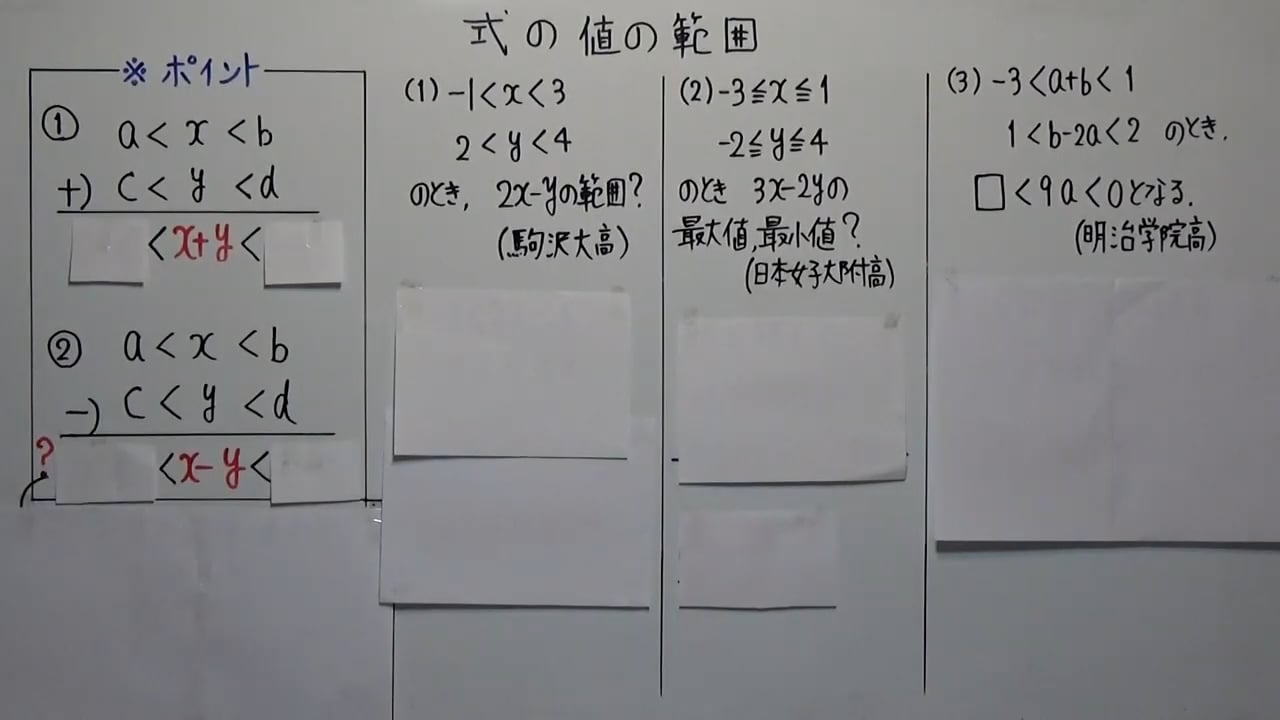 式の値の範囲
※ポイント
① a < x < b
+) c < y < d
< x+y <
② a < x < b
-) c < y < d
?
< x-y <
(1) -1 < x < 3
2 < y < 4
のとき, 2x-yの範囲?
(駒沢大高)
(2) -3 ≦ x ≦ 1
-2 ≦ y ≦ 4
のとき 3x-2yの
最大値,最小値?
(日本女子大附高)
(3) -3 < a+b < 1
1 < b-2a < 2 のとき.
□ < 9a < 0となる.
(明治学院高)